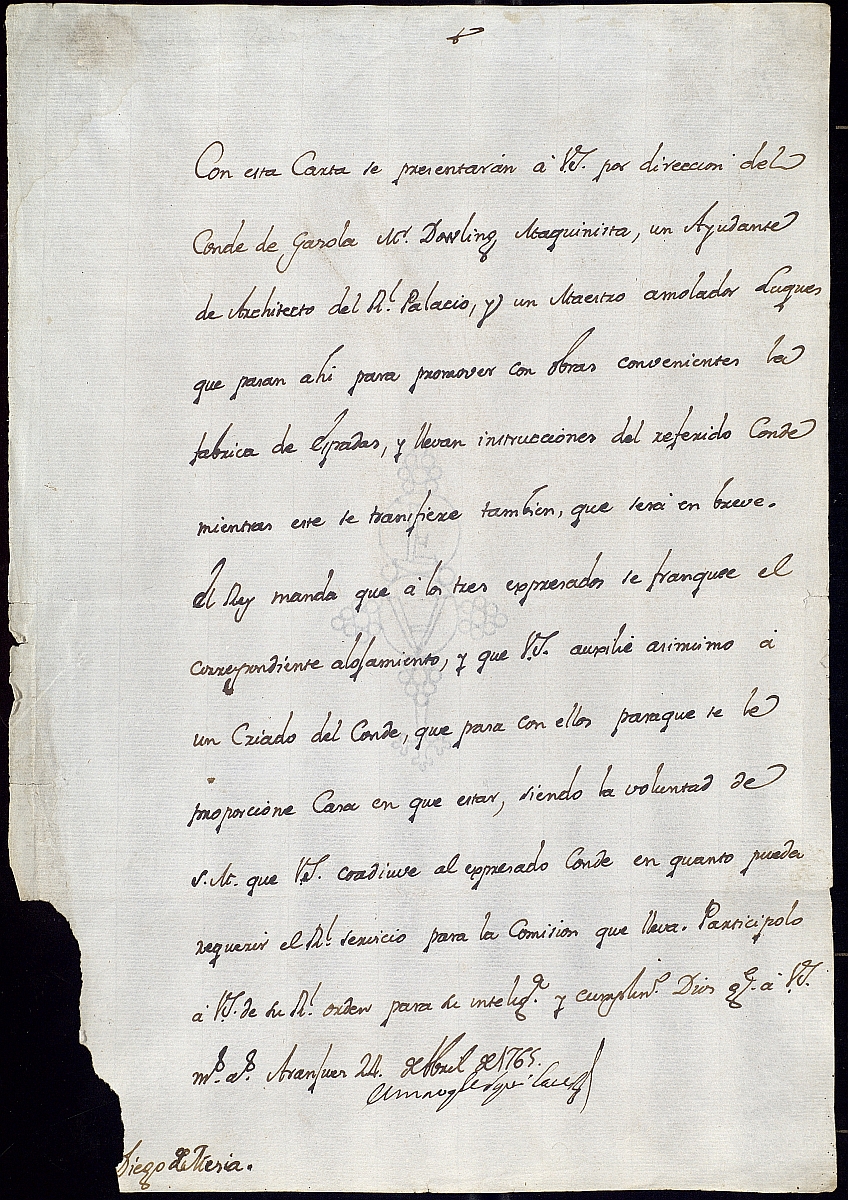 Con esta Carta se presentarán à V.S. por direccion del
Conde de Gazola Mr. Dowling Maquinista, un Ayudante
de Architecto del Rl. Palacio, y un Maestro amolador Luques
que pasan ahi para promover con obras convenientes la
fabrica de Espadas, y llevan instrucciones del referido Conde
mientras este se transfiere tambien, que será en breve.
El Rey manda que à los tres expresados se franquee el
correspondiente alojamiento, y que V.S. auxilie asimismo à
un Criado del Conde, que pasa con ellos paraque se le
proporcione Casa en que estar, siendo la voluntad de
S.M. que V.S. coadiuve al expresado Conde en quanto pueda
requerir el Rl. servicio para la Comision que lleva. Participolo
à V.S. de su Rl. orden para su intelig.a y cumplim.to Dios g.e à V.S.
m.s a.s Aranjuez 24. de Abril de 1765.
Diego de Mesia.